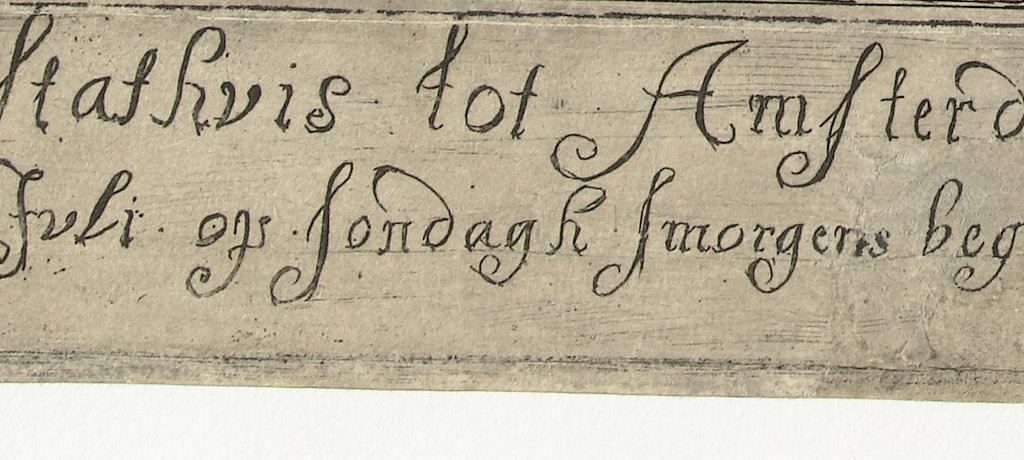 stathvis tot Amsterd
Jvli · op · sondagh smorgens beg